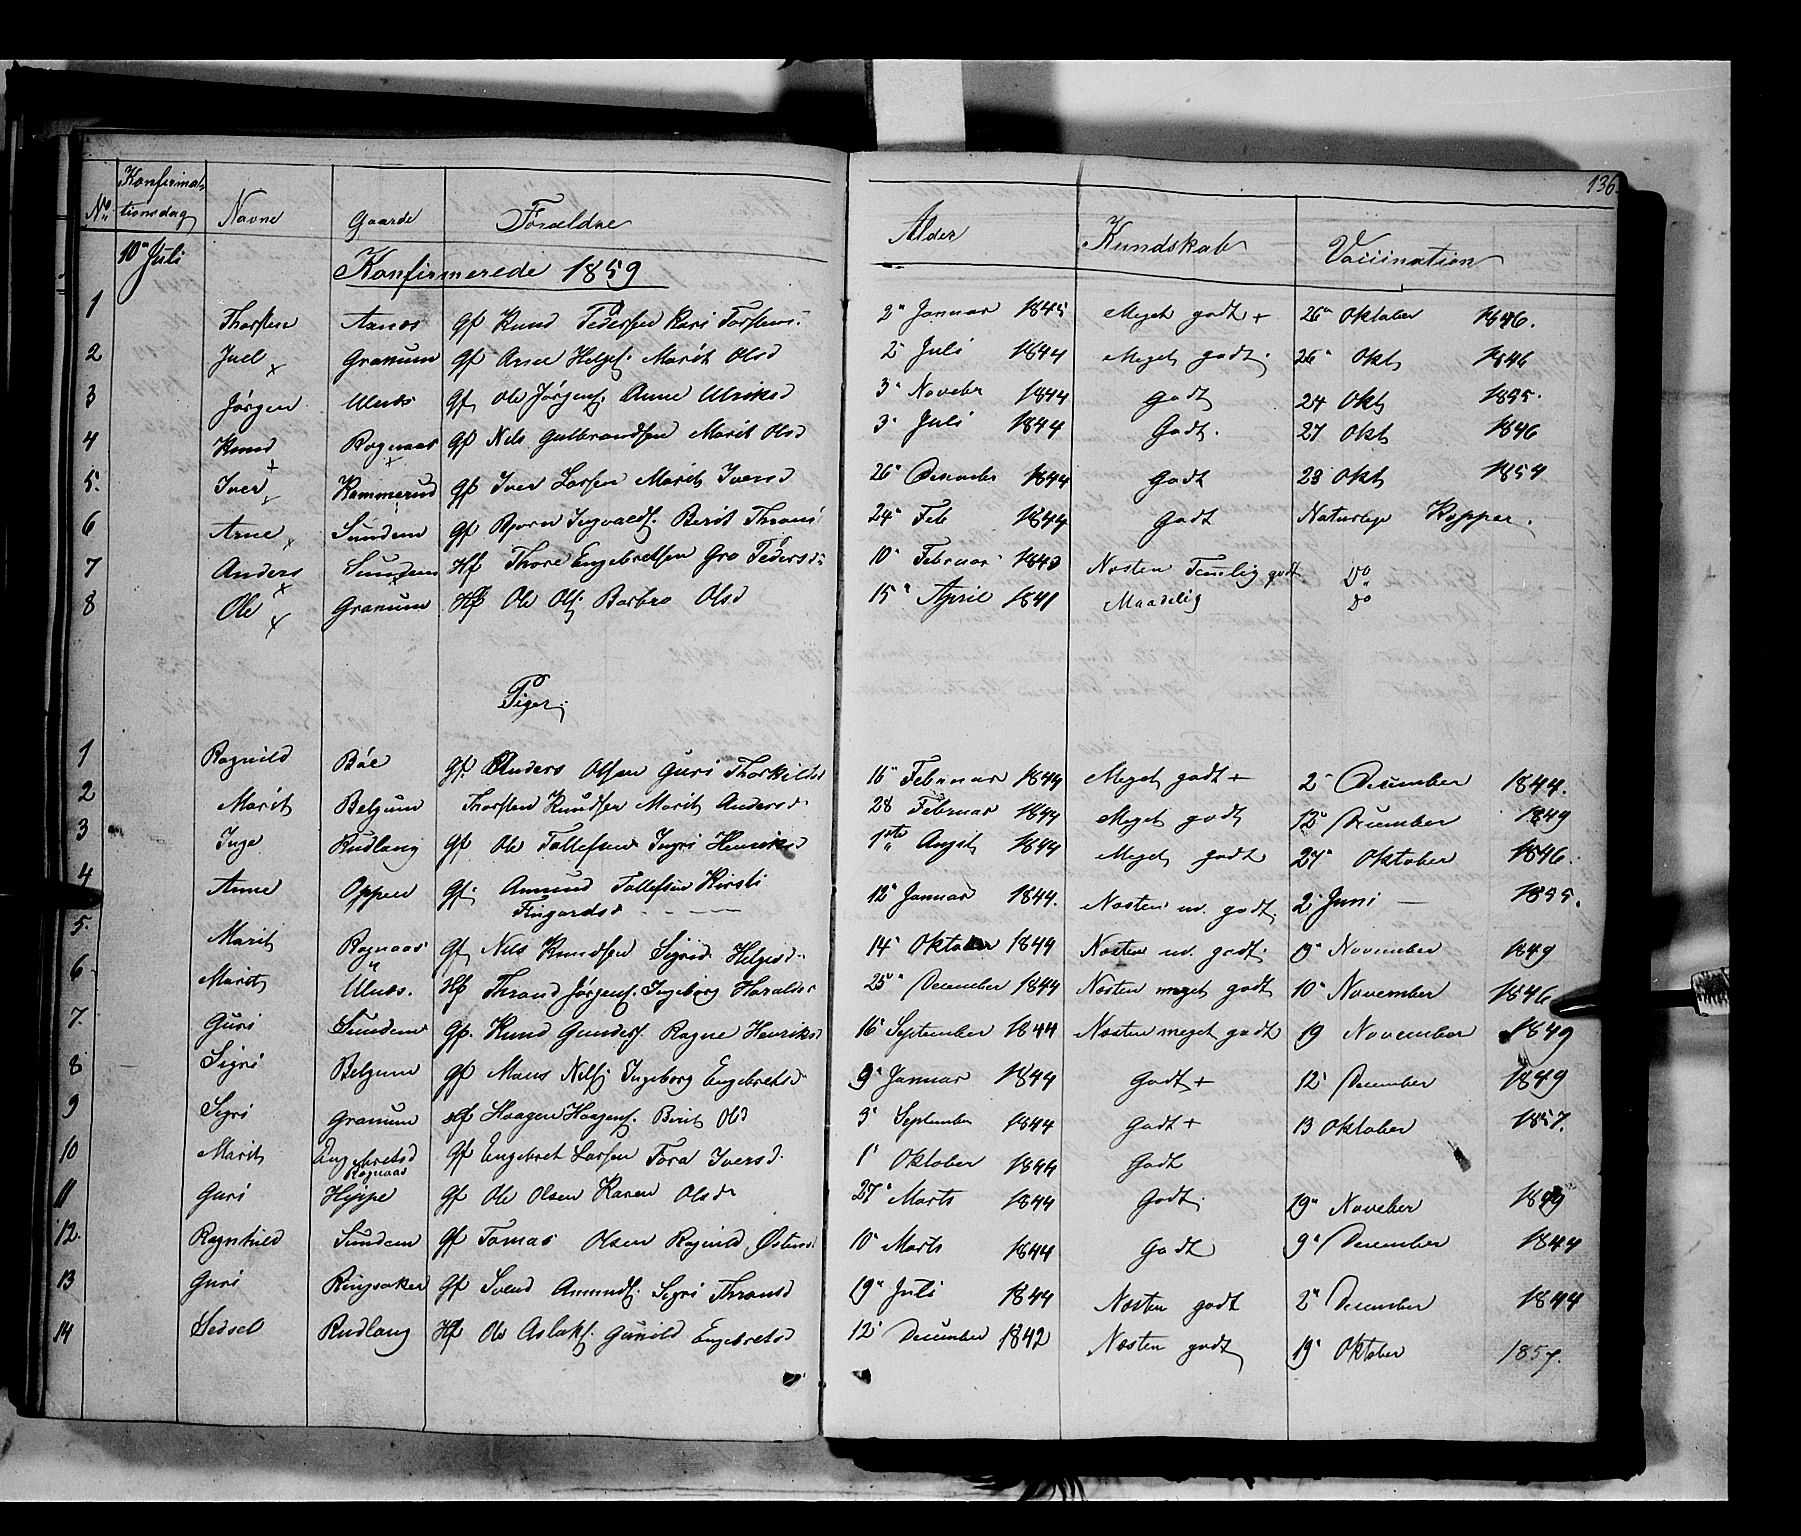 136.
No. Konfirmationsdag Navne Gaarde Foræeldre Alder Kundskab Vaccination
10" Juli Konfirmerede 1859
1 Thorsten Aanes Gf Knud Pedersen Kari Torstens. 2" Januar 1845 Meget godt + 26" Oktober 1846.
2 Juel x Granum Gf Arne Helges. Marit Olsd 2" Juli 1844 Meget godt. 26" Okt 1846
3 Jörgen Ulnes Gf Ole Jörgens. Anne Ulriksd 3" Noveber 1844 godt 24 Okt 1855.
4 Knud + Rognaas x Gf Nils Gulbrandsen Marit Olsd 3" Juli 1844 Godt. 27 Okt 1846
5. Iver x Kammerud Gf Iver Larsen Marit Iversd 26" December 1844 Godt 28 Okt 1854
6 Arne x Sundem Gf Bjørn Ingvalds. Berit Throns 24" Feb 1844 Godt Naturlige Kopper.
7 Anders x Sundem Hf Thore Engebretsen Gro Pedersd: 10" Februar 1843 Næsten Temlig godt Do
8 Ole x Granum Hf Ole Ols. Barbro Olsd 15" April 1841 Maadelig Do
Piger.
1 Ragnild Böe Gf Anders Olsen Guri Thorkildsd 16" Februar 1844 Meget godt + 2" December 1844.
2 Marit Belgum Thorsten Knudsen Marit Andersd. 28 Februar 1844 Meget godt 12" December 1849
3 Inge Rudlang Gf Ole Tollefsen Ingri Henriksd 1ste Augst 1844 Meget godt 27" Oktober 1846.
4 Anne Oppen Gf. Amund Tollefsen Kirsti 12" Januar 1844. Næsten m. godt 2" Juni — 1855.
Fingardsd - - - -
5. Marit Rognaas Gf Nils Knudsen Sigrid Helgesd. 14" Oktober 1844 Næsten m. godt. November 1849
6 Marit Ulnes. Hf Thrond Jörgens. Ingeborg Haralds 25" December 1844 Næsten meget godt 10" November 1846
7. Guri Sundem Gf. Knud Gunders. Ragne Henriksd 16" September 1844 Næsten meget godt 19 November 1849
8 Sigri Belgum Gf Mons Nils. Ingeborg Engebretsd. 9" Januar 1844 Godt + 12" December 1849
9 Sigri Granum Gf Haagen Haagens. Birit Olsd 9" September 1844 Godt + 13 Oktober 1857.
10 Marit Engebretsd Rognaas Gf Engebret Larsen Tora Iversd. 1" Oktober 1844 Godt
11 Guri Hippe Gf Ole Olsen Karen Olsdr 27" Marts 1844 Godt. 19" Noveber 1849
12. Ragnhild Sundem Gf Tomas Olsen Ragnild Østensd 10" Marts 1844 Godt 9" December 1844
13 Guri Ringsaker Gf Svend Amunds. Sigri Thronsd 19" Juli 1844 Næsten godt 2" December 1844
14 Sedsel Rudlang Hf Ole Aslaks. Gunild Engebretsd 12" December 1842 Næsten godt 19" Oktober 1857.